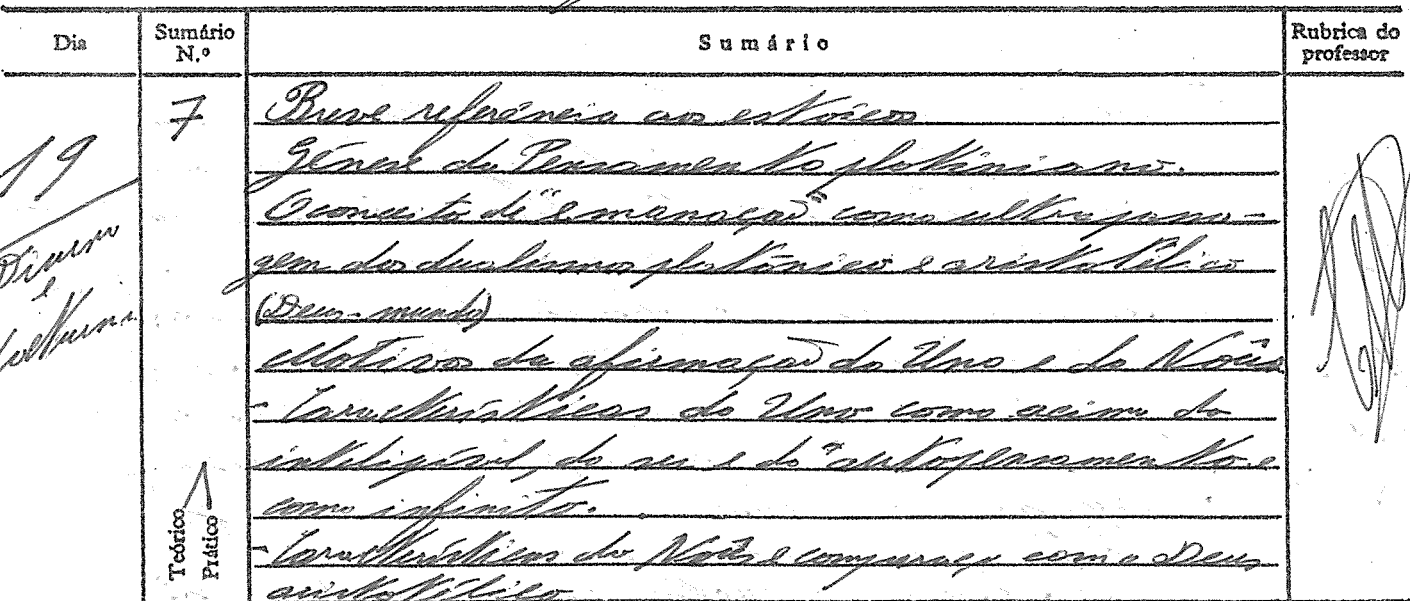 Dia
Sumário N.º
Sumário
Rubrica do professor
19
Diurno
e
7
Breve referência aos estóicos
Génese do Pensamento plotiniano.
O conceito de "emanação" como ultrapassa-
gem dos dualismos platónico e aristotélico
(Deus-mundo)
Motivos da afirmação do Uno e do Noûs
- Características do Uno como acima do
inteligível, do ser e do "autopensamento e
como infinito.
- Características do Noûs e comparaç com o Deus
aristotélico
Teórico
Prático